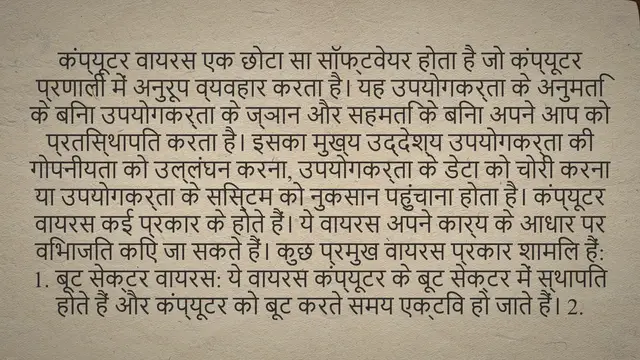 कंप्यूटर वायरस एक छोटा सा सॉफ्टवेयर होता है जो कंप्यूटर
प्रणाली में अनुरूप व्यवहार करता है। यह उपयोगकर्ता के अनुमति
के बिना उपयोगकर्ता के ज्ञान और सहमति के बिना अपने आप को
प्रतिस्थापित करता है। इसका मुख्य उद्देश्य उपयोगकर्ता की
गोपनीयता को उल्लंघन करना, उपयोगकर्ता के डेटा को चोरी करना
या उपयोगकर्ता के सिस्टम को नुकसान पहुंचाना होता है। कंप्यूटर
वायरस कई प्रकार के होते हैं। ये वायरस अपने कार्य के आधार पर
विभाजित किए जा सकते हैं। कुछ प्रमुख वायरस प्रकार शामिल हैं:
1. बूट सेक्टर वायरस: ये वायरस कंप्यूटर के बूट सेक्टर में स्थापित
होते हैं और कंप्यूटर को बूट करते समय एक्टिव हो जाते हैं। 2.